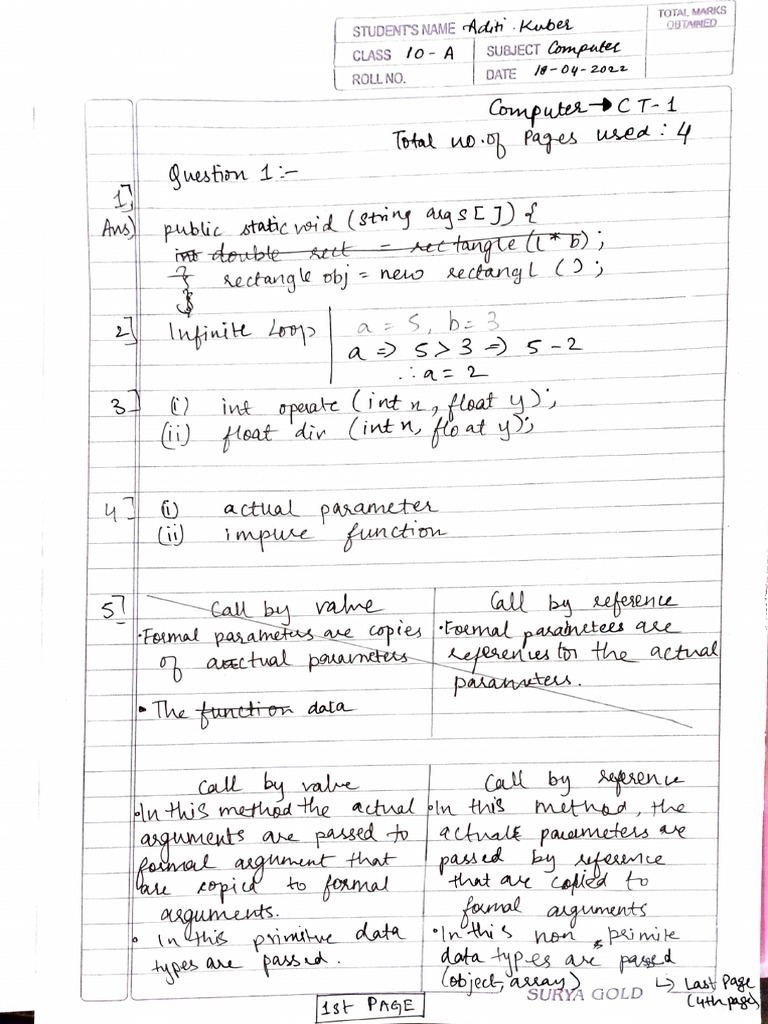 STUDENT'S NAME Aditi Kuber
TOTAL MARKS OBTAINED
CLASS 10-A SUBJECT Computer
ROLL NO. DATE 18-04-2022
Computer → CT-1
Total no. of Pages used : 4
Question 1 :-
1]
Ans) public static void (string args[]) {
int double rect = rectangle (l * b) ;
} rectangle obj = new rectangl () ;
}
2] Infinite Loop
a = 5, b = 3
a => 5 > 3 => 5 - 2
∴ a = 2
3] (i) int operate (int n, float y);
(ii) float div (int n, float y);
4] (i) actual parameter
(ii) impure function
5] Call by value
• Formal parameters are copies
of actual parameters
• The function data
Call by reference
• Formal parameters are
references to the actual
parameters.
Call by value
• In this method the actual
arguments are passed to
formal argument that
are copied to formal
arguments.
• In this primitive data
types are passed.
Call by reference
• In this method, the
actual parameters are
passed by reference
that are copied to
formal arguments
• In this non primite
data types are passed
(object, array)
↳ Last Page
(4th page)
SURYA GOLD
1st PAGE